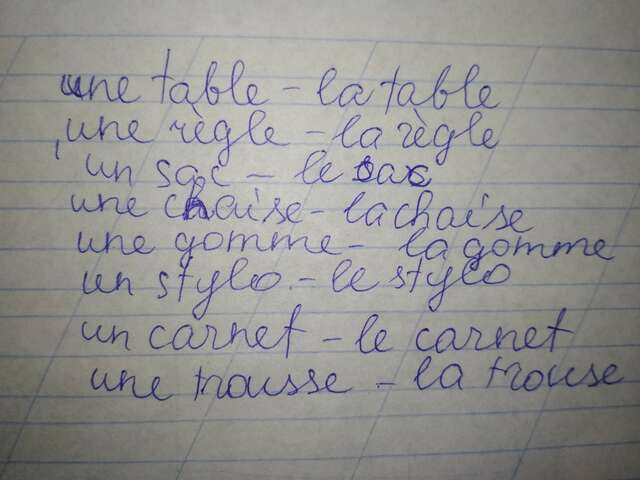 une table - la table
une règle - la règle
un sac - le sac
une chaise - la chaise
une gomme - la gomme
un stylo - le stylo
un carnet - le carnet
une trousse - la trouse